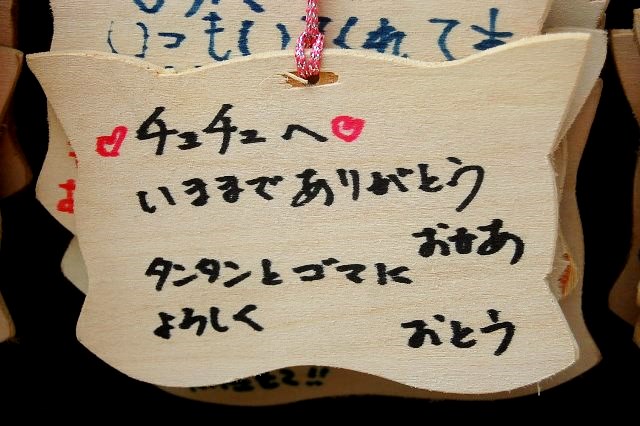 いつもいてくれてま
チュチュへ
いままでありがとう
おかあ
タンタンとゴマに
よろしく
おとう